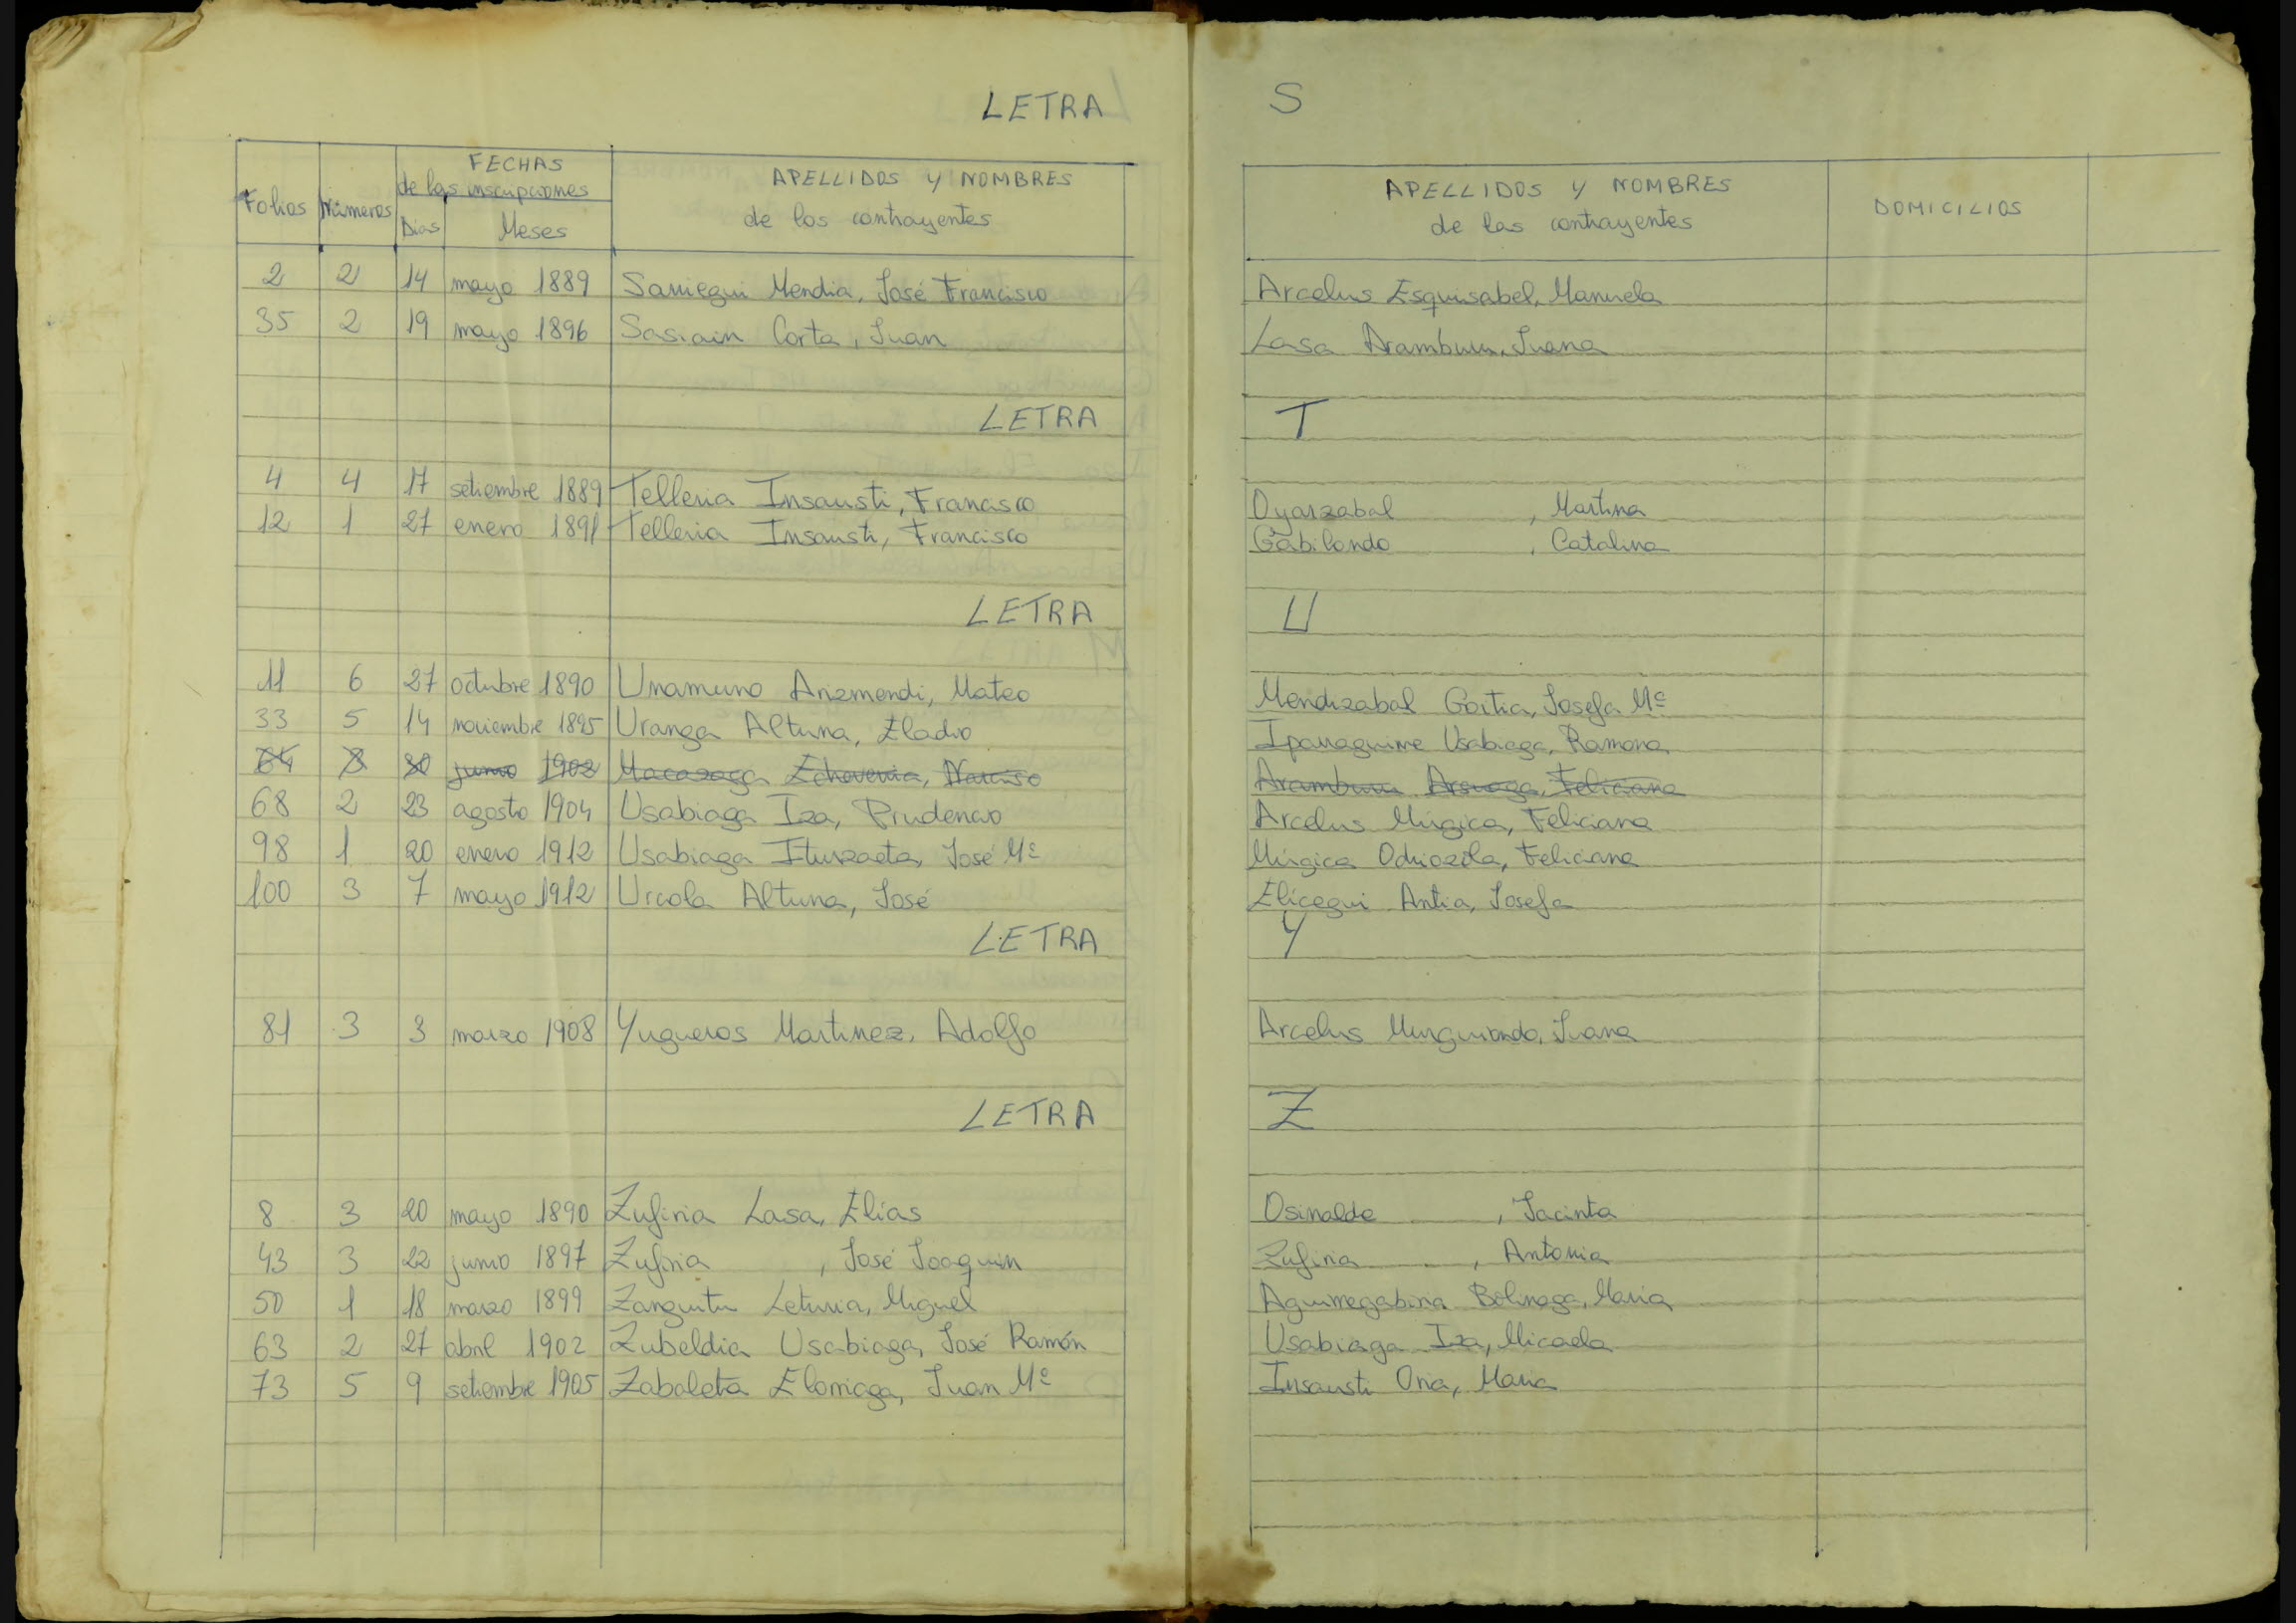 LETRA S
Folios Números FECHAS de las inscripciones Días Meses APELLIDOS Y NOMBRES de los contrayentes APELLIDOS Y NOMBRES de las contrayentes DOMICILIOS
2 2 14 mayo 1889 Sarriegui Mendia, José Francisco Arcelus Esquisabel, Manuela
35 2 19 mayo 1896 Sasiain Corta, Juan Lasa Aramburu, Juana
LETRA T
4 4 17 setiembre 1889 Telleria Insausti, Francisco Oyarzabal , Martina
12 1 27 enero 1891 Telleria Insausti, Francisco Gabilondo , Catalina
LETRA U
11 6 27 octubre 1890 Unamuno Arizmendi, Mateo Mendizabal Goitia, Josefa Mª
33 5 14 noviembre 1895 Uranga Altuna, Eladio Iparraguirre Usabiaga, Ramona
64 8 30 junio 1902 Macazaga Echeverria, Narciso Aramburu Arsuaga, Feliciana
68 2 23 agosto 1904 Usabiaga Iza, Prudencio Arcelus Múgica, Feliciana
98 1 20 enero 1912 Usabiaga Iturzaeta, José Mª Múgica Odriozola, Feliciana
100 3 7 mayo 1912 Urcola Altuna, José Elícegui Antia, Josefa
LETRA Y
81 3 3 marzo 1908 Yugueros Martinez, Adolfo Arcelus Murguiondo, Juana
LETRA Z
8 3 20 mayo 1890 Zufiria Lasa, Elías Osinalde , Jacinta
43 3 22 junio 1897 Zufiria , José Joaquin Zufiria , Antonia
50 1 18 marzo 1899 Zanguitu Leturia, Miguel Aguirregabiria Bolinaga, Maria
63 2 27 abril 1902 Zubeldia Usabiaga, José Ramón Usabiaga Iza, Micaela
73 5 9 setiembre 1905 Zabaleta Elorriaga, Juan Mª Insausti Oria, Maria